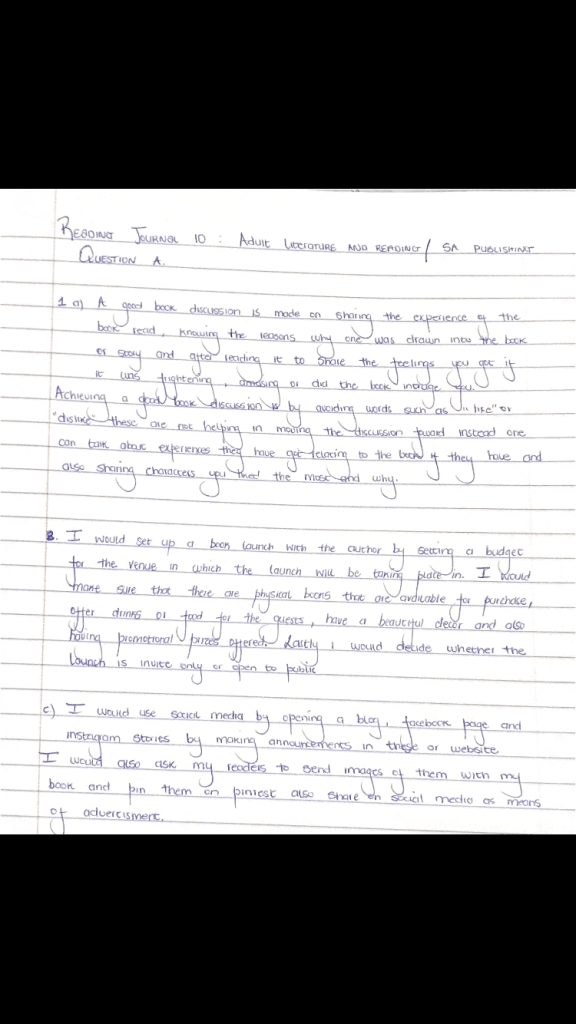 READING JOURNAL 10 : ADULT LITERATURE AND READING / SA PUBLISHING
QUESTION A.
1 a) A good book discussion is made on sharing the experience of the
book read, knowing the reasons why one was drawn into the book
or story and after reading it to share the feelings you get if
it was frightening, amazing or did the book intrigue you.
Achieving a good book discussion is by avoiding words such as "like" or
"dislike" these are not helping in moving the discussion foward instead one
can talk about experiences they have got relating to the book if they have and
also sharing characters you liked the most and why.
B. I would set up a book launch with the author by setting a budget
for the venue in which the launch will be taking place in. I would
make sure that there are physical books that are available for purchase,
offer drinks or food for the guests, have a beautiful decor and also
having promotional prizes offered. Lastly I would decide whether the
launch is invite only or open to public
c) I would use social media by opening a blog, facebook page and
instagram stories by making announcements in these or website
I would also ask my readers to send images of them with my
book and pin them on pintrest also share on social media as means
of advertisment.